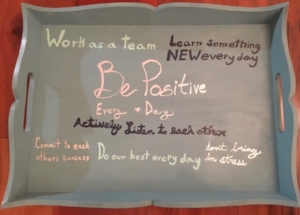 Work as a team
Learn something
NEW every day
Be Positive
Every Day
Actively Listen to each other
Commit to each
others success
Do our best every day
don't bring
in stress